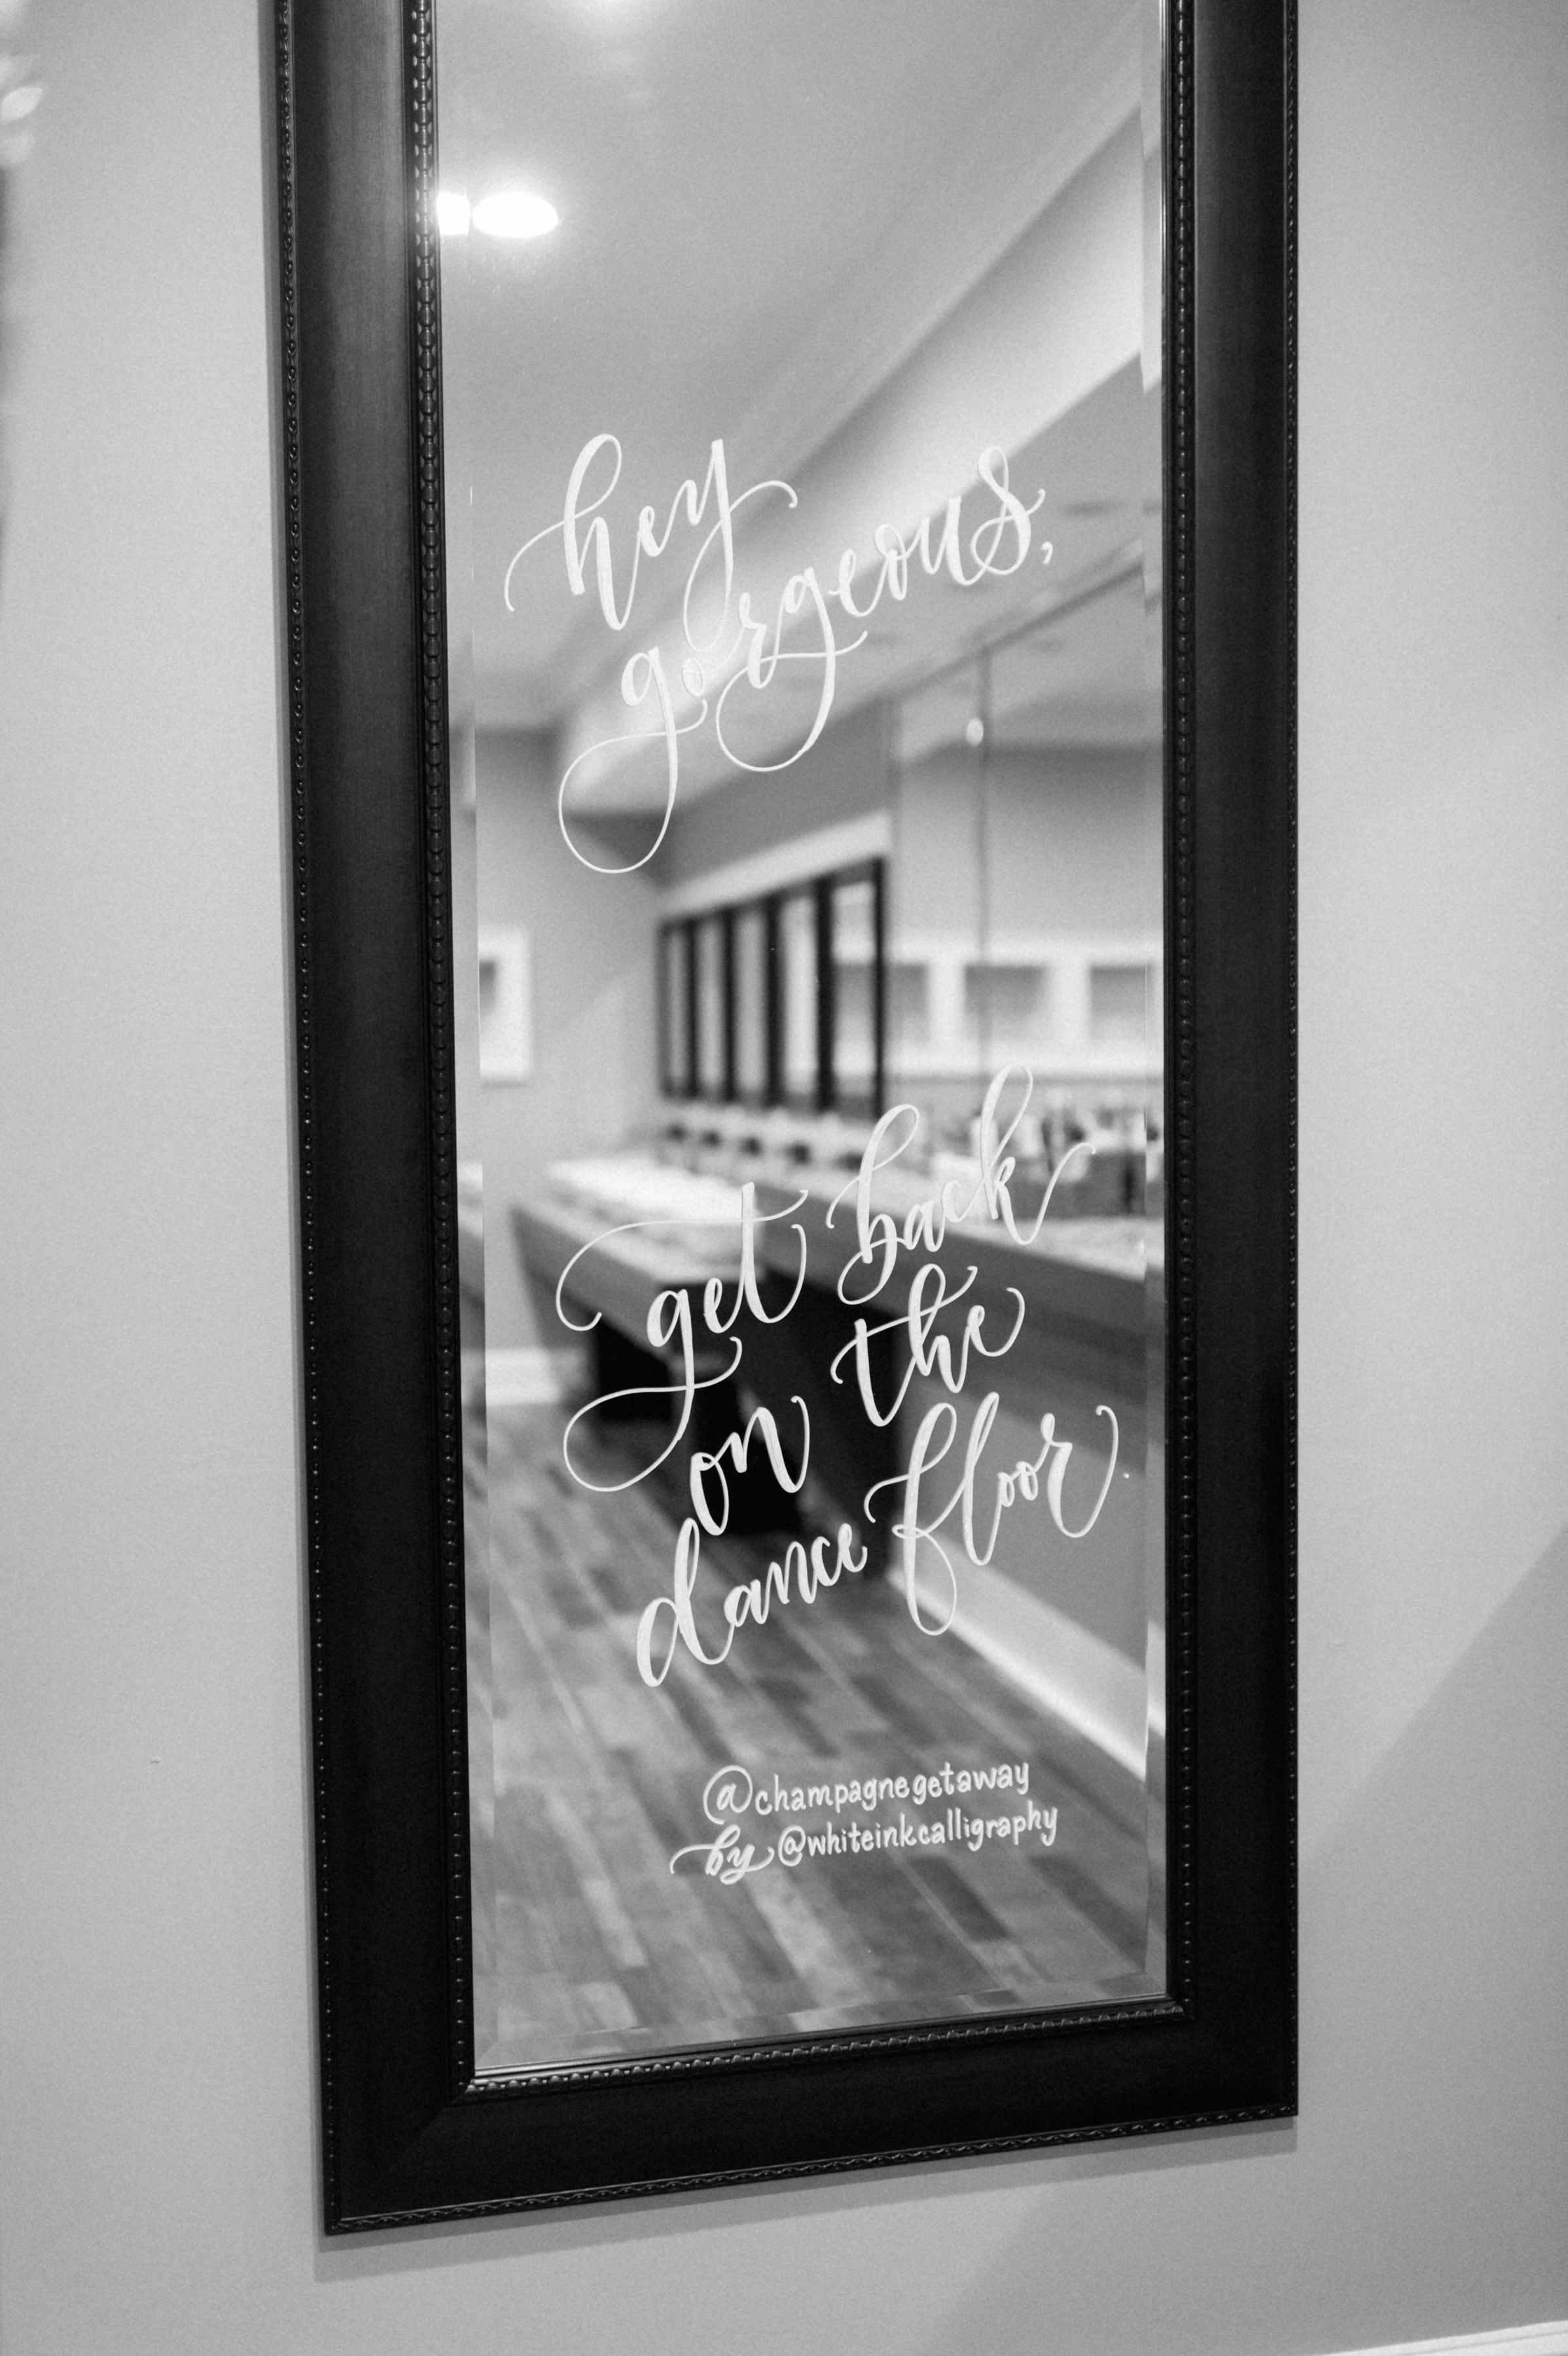 hey
gorgeous,
get back
on the
dance floor.
@champagnegetaway
by @whiteinkcalligraphy